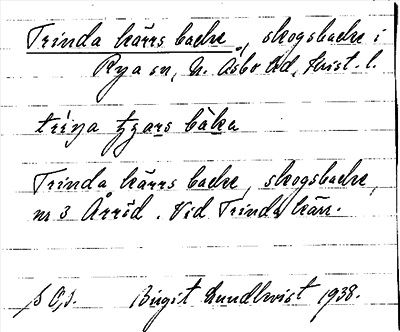 Trinda kärrs backe, skogsbacke i
Rya sn, N. Åsbo hd, Krist. l.
Trinda kärrs backe, skogsbacke,
nr 3 Årröd. Vid Trinda kärr.
Birgit Lundkvist 1938.